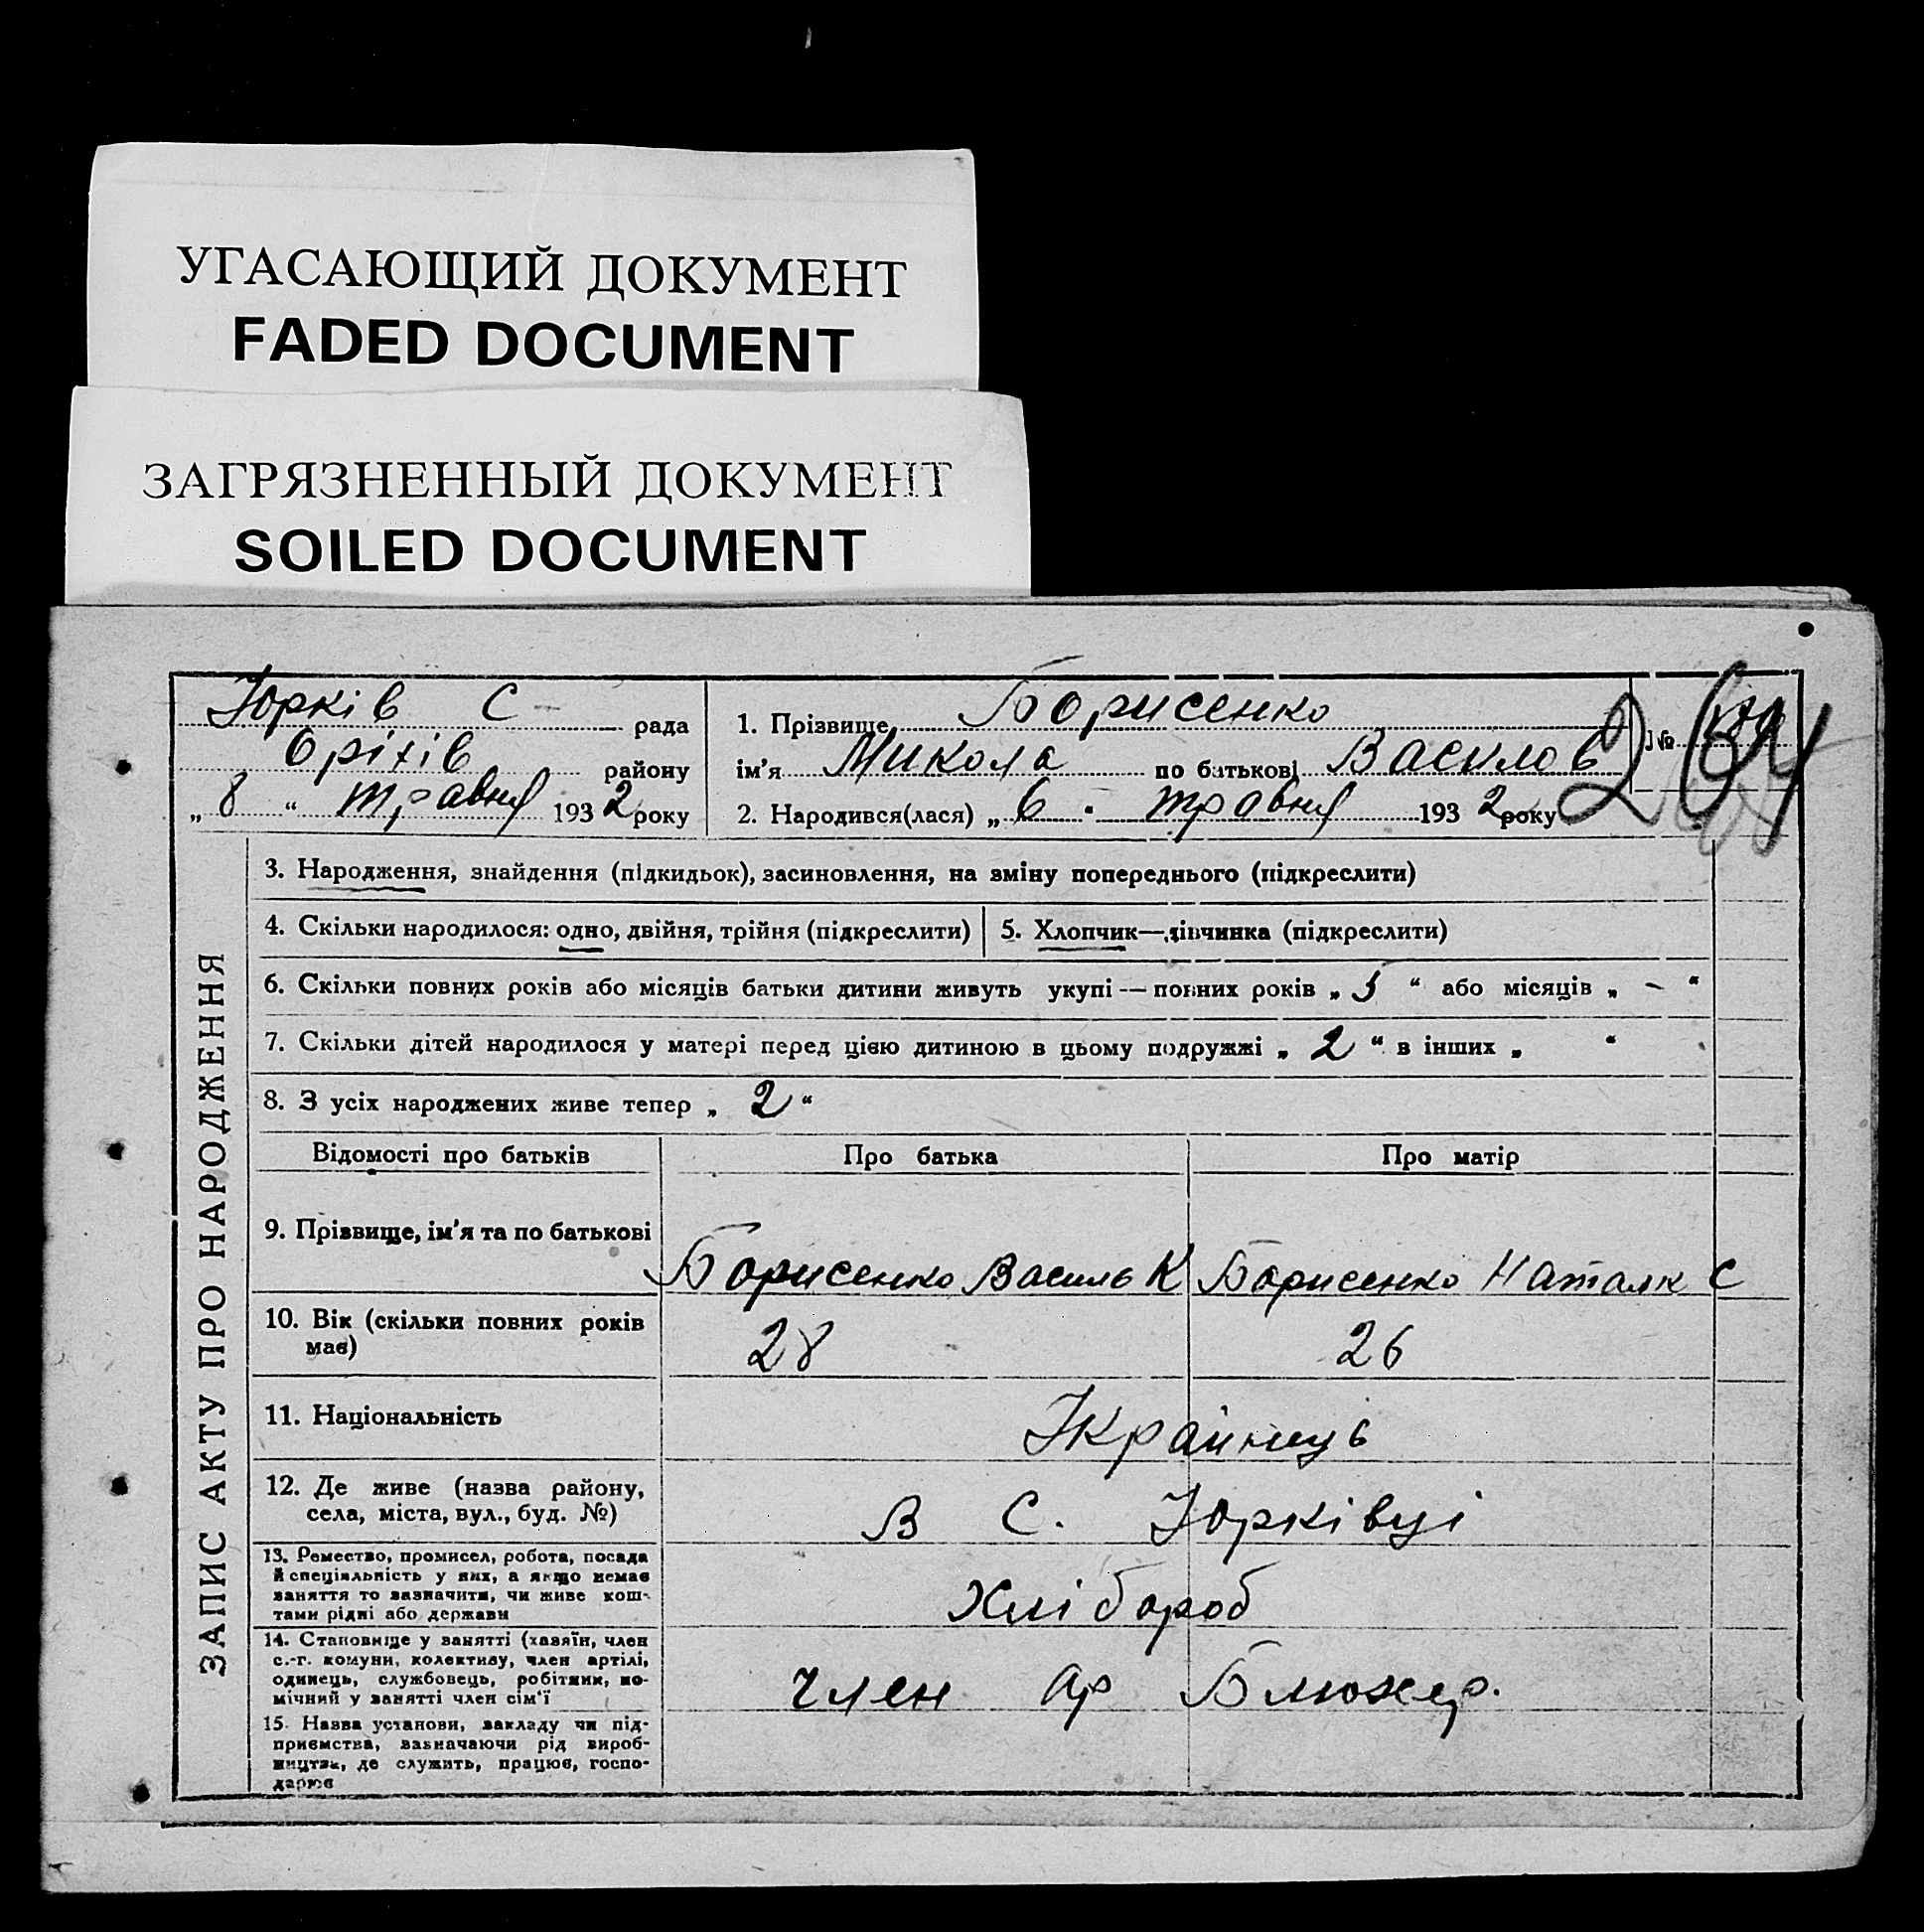 УГАСАЮЩИЙ ДОКУМЕНТ
FADED DOCUMENT
ЗАГРЯЗНЕННЫЙ ДОКУМЕНТ
SOILED DOCUMENT
Юрків С рада
Оріхів району
„ 8 “ травня 1932 року
1. Прізвище Борисенко
ім'я Микола по батькові Василов
2. Народився(лася) „ 6 " травня 1932 року
№
ЗАПИС АКТУ ПРО НАРОДЖЕННЯ
3. Народження, знайдення (підкидьок), засиновлення, на зміну попереднього (підкреслити)
4. Скільки народилося: одно, двійня, трійня (підкреслити)
5. Хлопчик—дівчинка (підкреслити)
6. Скільки повних років або місяців батьки дитини живуть укупі — повних років „ 5 “ або місяців „ - “
7. Скільки дітей народилося у матері перед цією дитиною в цьому подружжі „ 2 “ в інших „ “
8. З усіх народжених живе тепер „ 2 “
Відомості про батьків Про батька Про матір
9. Прізвище, ім'я та по батькові
Борисенко Василь К Борисенко Наталк С
10. Вік (скільки повних років
має)
28 26
11. Національність
Українць
12. Де живе (назва району,
села, міста, вул., буд. №)
в С. Юрківці
13. Ремество, промисел, робота, посада
й спеціяльність у них, а якщо немає
заняття то зазначити, чи живе кош-
тами рідні або держави
Хлібороб
14. Становище у занятті (хазяїн, член
с.-г. комуни, колективу, член артілі,
одинець, службовець, робітник, по-
мічний у занятті член сім'ї
член ар Блюхер.
15. Назва установи, закладу чи під-
приємства, зазначаючи рід вироб-
ництва, де служить, працює, госпо-
дарює